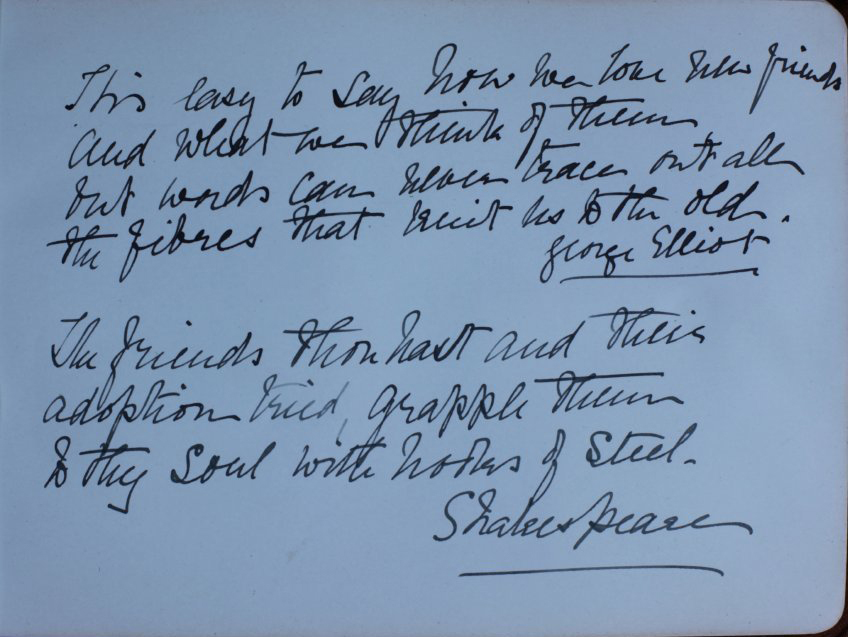 This easy to say how we love new friends
and what we think of them
but words can never trace out all
the fibres that knit us to the old.
George Elliot
The friends thou hast and their
adoption tried, grapple them
to thy Soul with hooks of Steel.
Shakespeare